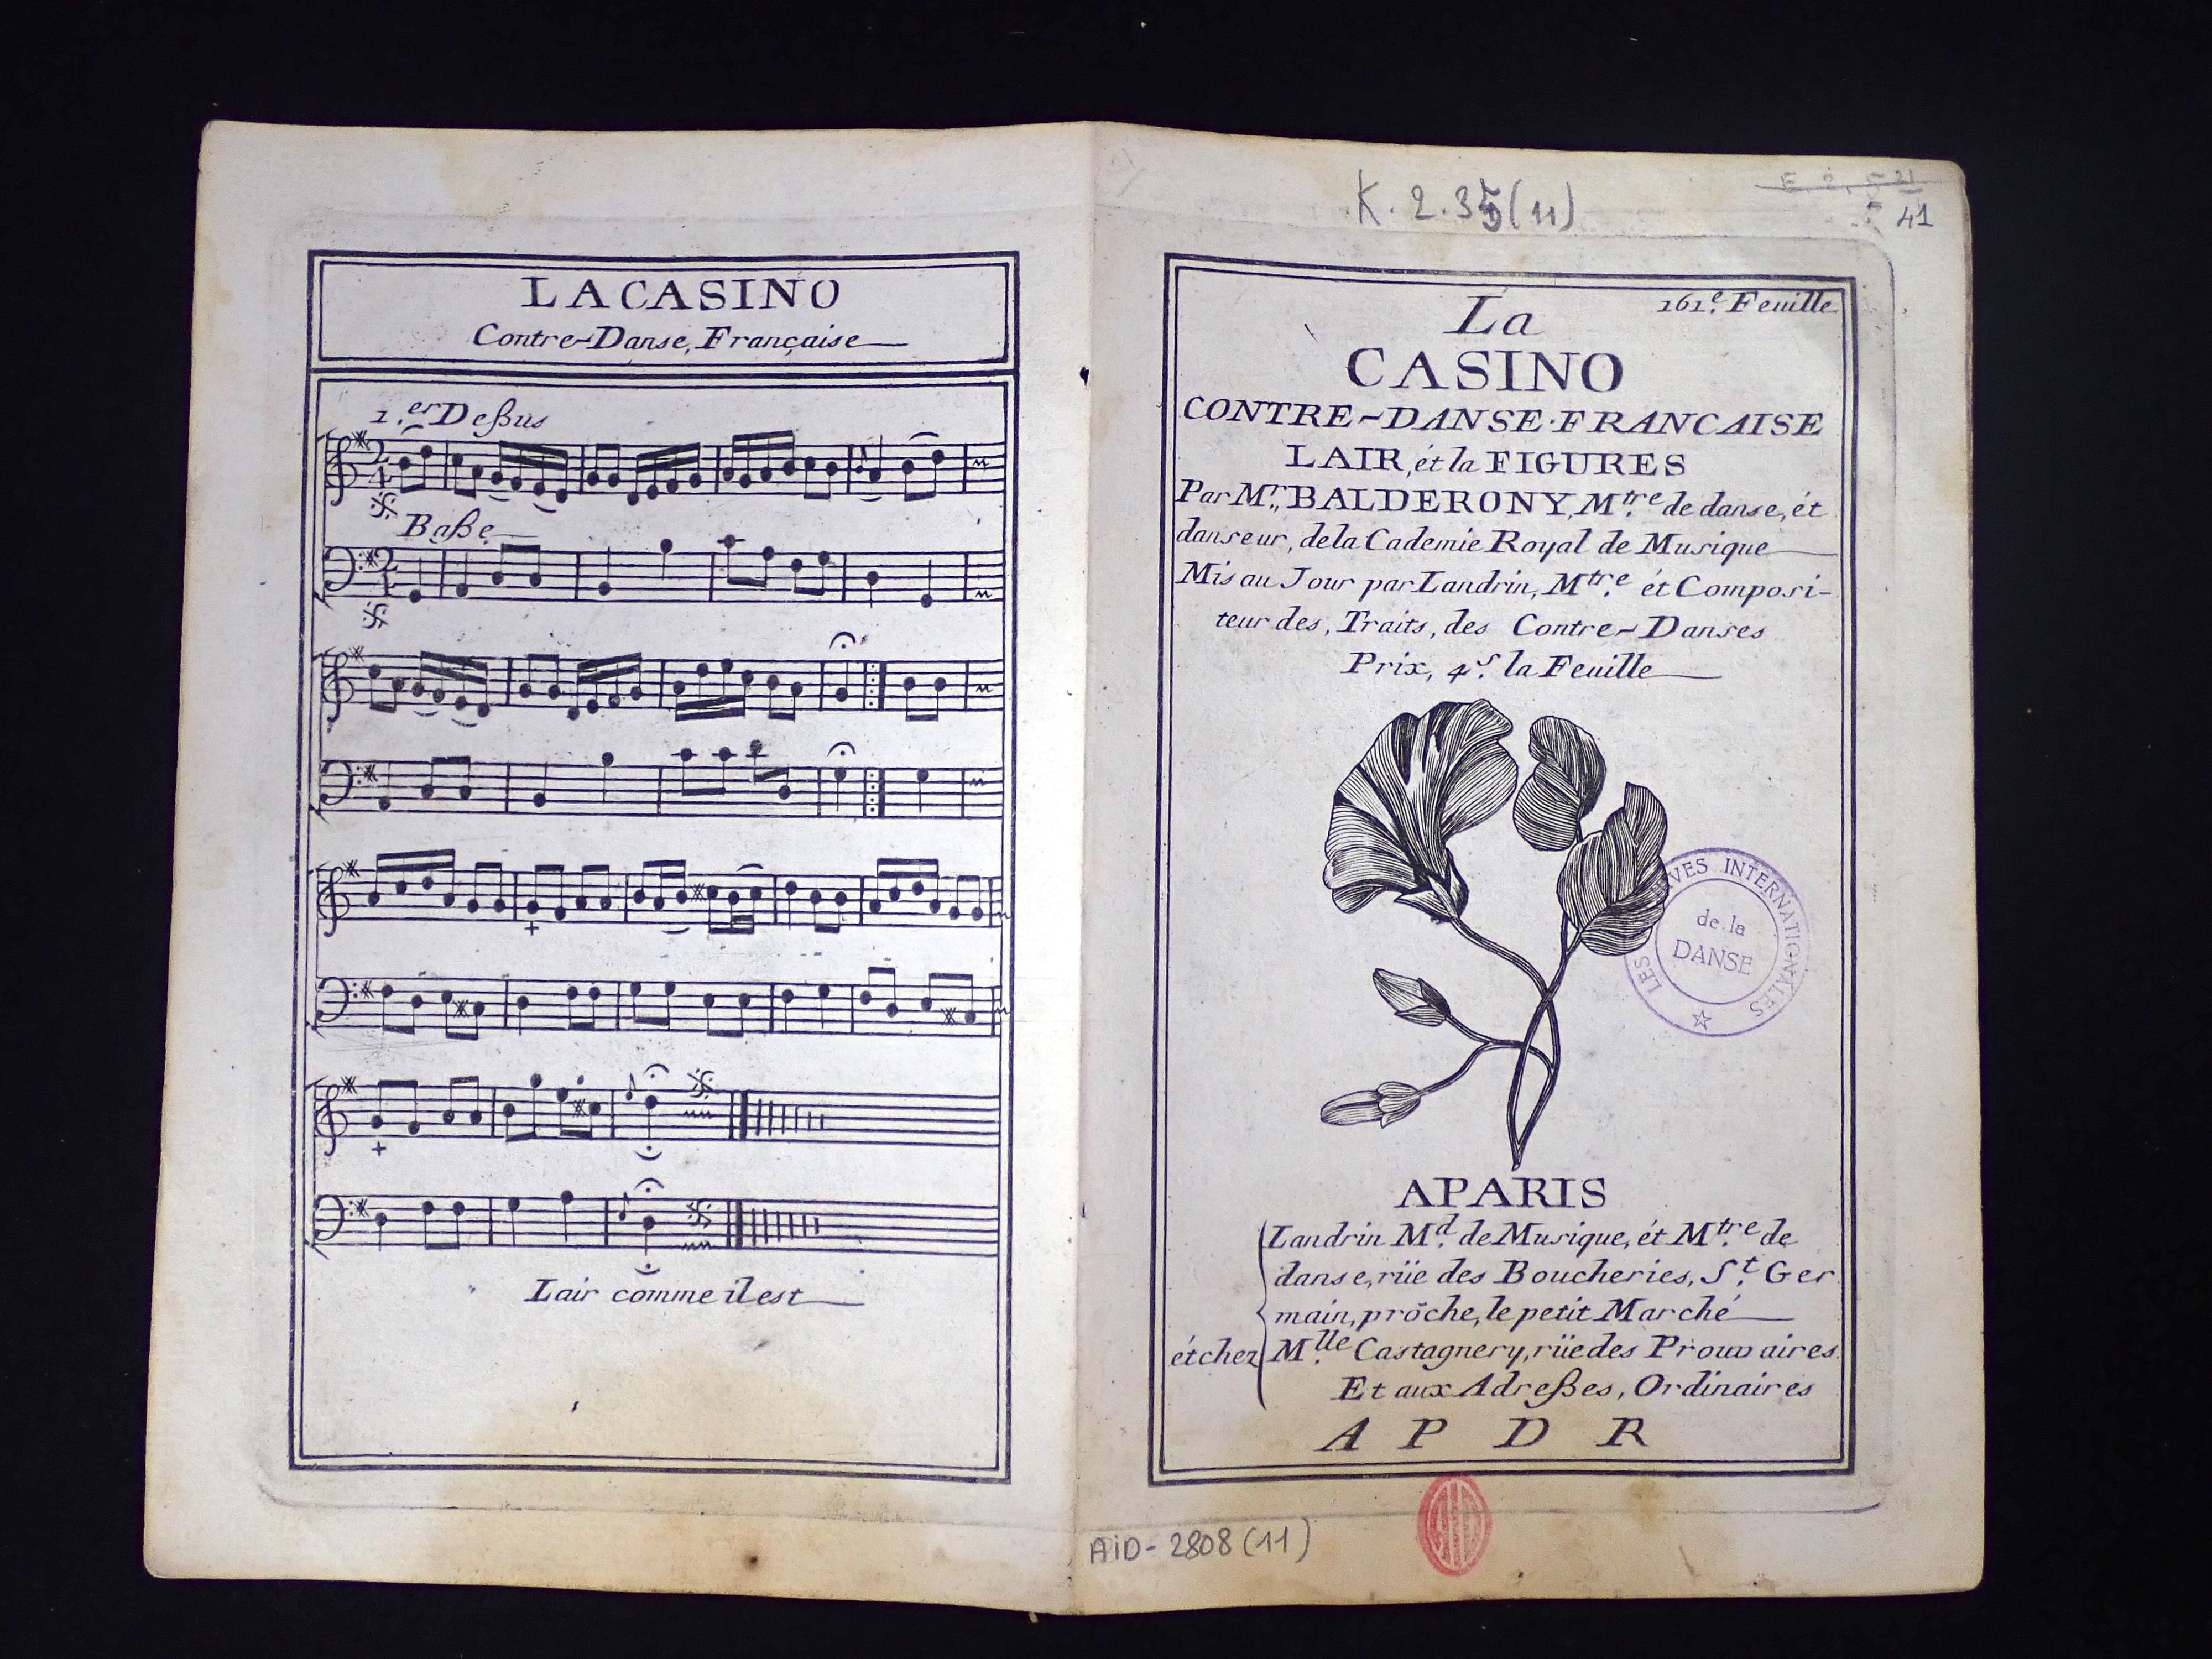 LA CASINO
Contre-Danse, Française
1.er Deßus
2
4
Baße
2
4
Lair comme il est
K. 2. 35 (11)
41
161.e Feuille
La
CASINO
CONTRE-DANSE·FRANCAISE
LAIR, ét la FIGURES
Par Mr. BALDERONY, Mtre. de danse, ét
danseur, de la Cademie Royal de Musique
Mis au Jour par Landrin, Mtre. ét Composi-
teur des, Traits, des Contre-Danses
Prix, 4.s la Feuille
LES ARCHIVES INTERNATIONALES
de la
DANSE
APARIS
Landrin Md. de Musique, ét Mtre. de
danse, rüe des Boucheries, St. Ger
main, prôche, le petit Marché
ét chez Mlle. Castagnery, rüe des Prouvaires
Et aux Adreßes, Ordinaires
A P D R
AID-2808 (11)